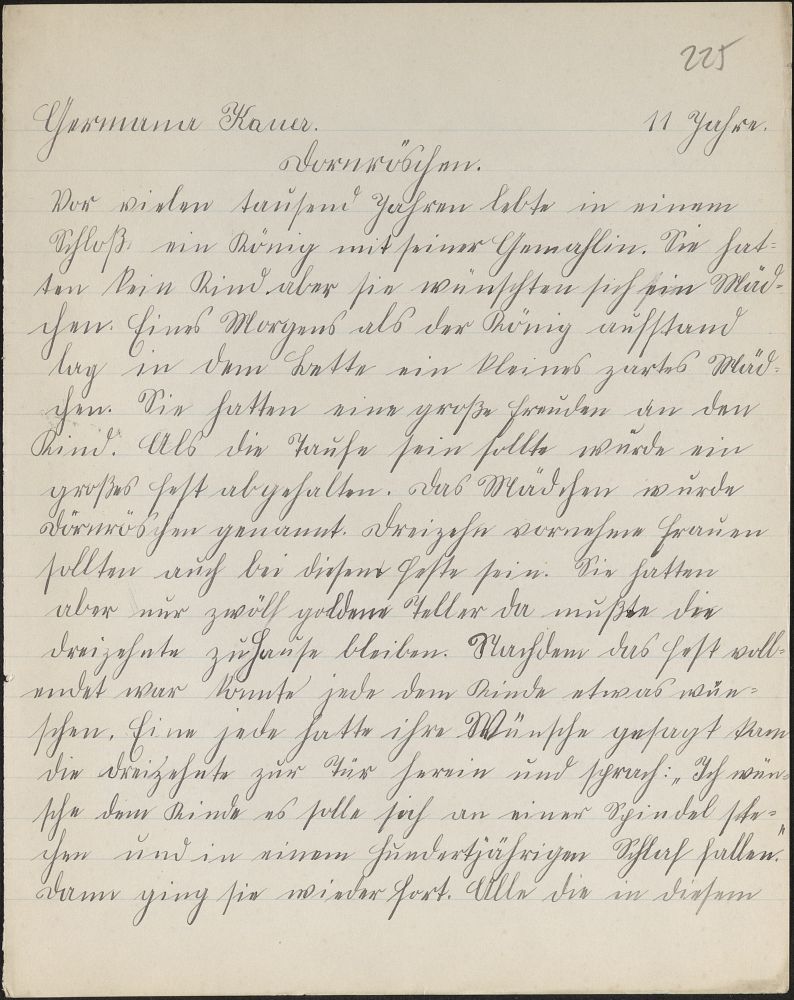 225
Germana Kauer. 11 Jahre.
Dornröschen.
Vor vielen tausend Jahren lebte in einem
Schloß. ein König mit seiner Gemahlin. Sie hat=
ten kein Kind. aber sie wünschten sich ein Mäd=
chen. Eines Morgens als der König aufstand
lag in dem Bette ein kleines zartes Mäd=
chen. Sie hatten eine große Freuden an den
Kind. Als die Taufe sein sollte wurde ein
großes Fest abgehalten. Das Mädchen wurde
Dörnröschen genannt. Dreizehn vornehme Frauen
sollten auch bei diesem Feste sein. Sie hatten
aber nur zwölf goldene Teller da mußte die
dreizehnte zuHause bleiben. Nachdem das Fest voll=
endet war konnte jede dem Kinde etwas wün=
schen. Eine jede hatte ihre Wünsche gesagt kam
die dreizehnte zur Tür herein und sprach: „Ich wün=
sche dem Kinde es solle sich an einer Spindel ste=
chen und in einem hundertjährigen Schlaf fallen."
Dann ging sie wieder fort. Alle die in diesem